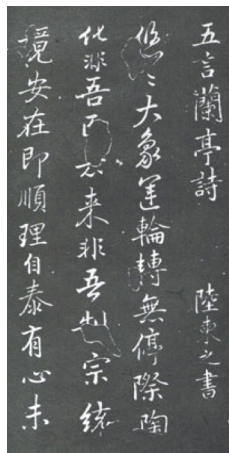 五言蘭亭詩 陸柬之書
悠〻大象運輪轉無停際陶
化非吾匠去来非吾制宗統
竟安在即順理自泰有心未